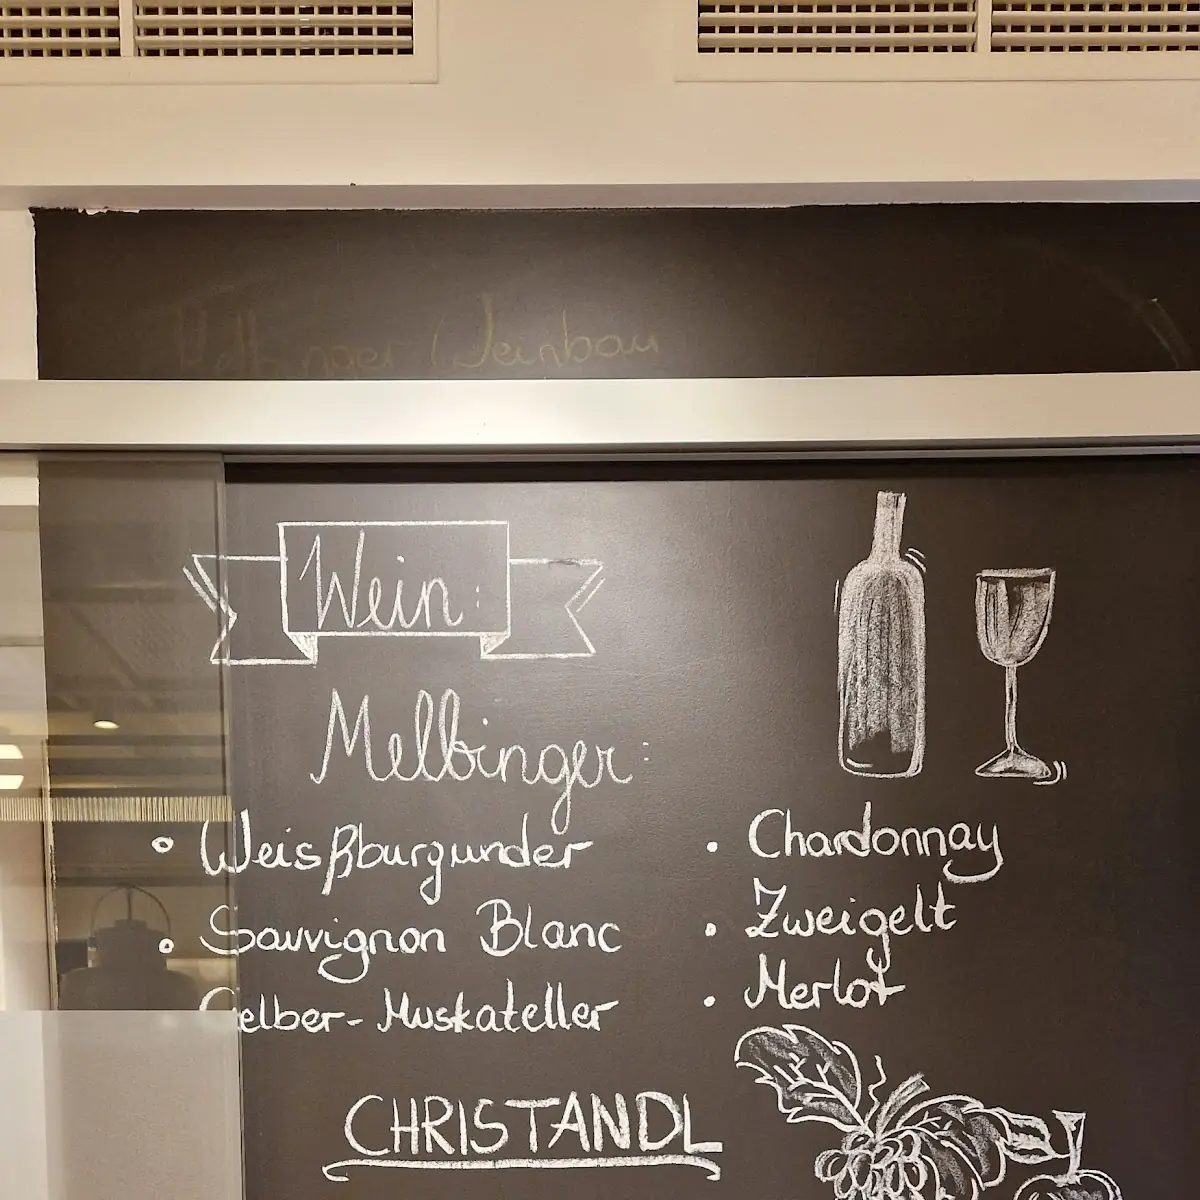 Melbinger Weinbau
Wein:
Melbinger:
• Weißburgunder
• Sauvignon Blanc
Gelber-Muskateller
• Chardonnay
• Zweigelt
• Merlot
CHRISTANDL